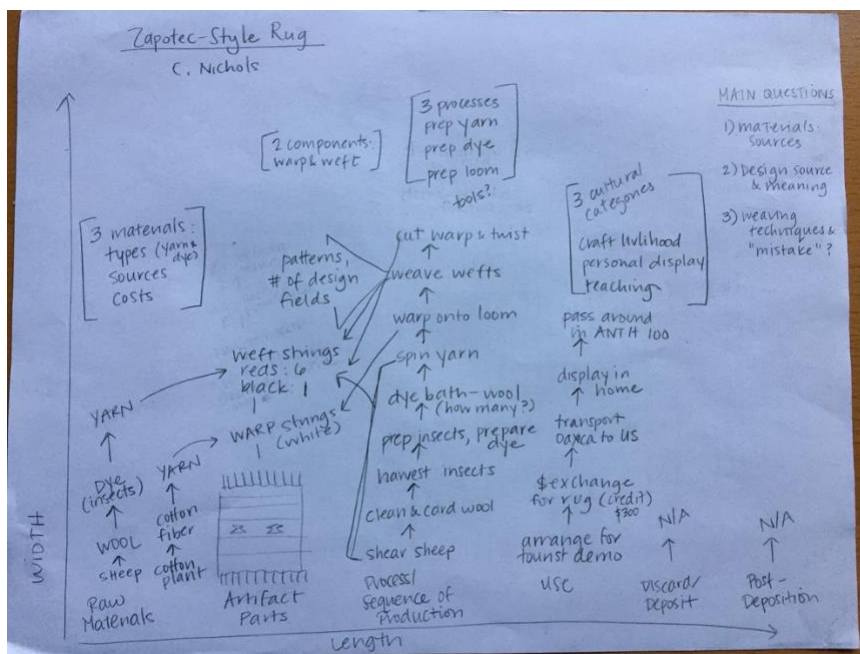 Zapotec-Style Rug
C. Nichols
MAIN QUESTIONS
1) materials:
sources
2) Design source
& meaning
3) weaving
techniques &
"mistake"?
3 processes
prep yarn
prep dye
prep loom
tools?
2 components:
warp & weft
3 cultural
categories
craft livlihood
personal display
teaching
3 materials:
types (yarn &
dye)
sources
costs
patterns,
# of design
fields
weft strings
reds: 6
black: 1
WARP strings
(white)
YARN
Dye
(insects)
WOOL
sheep
YARN
cotton
fiber
cotton
plant
cut warp & twist
weave wefts
warp onto loom
spin yarn
dye bath - wool
(how many?)
prep insects, prepare
dye
harvest insects
clean & card wool
shear sheep
pass around
in ANTH 100
display in
home
transport
Oaxca to US
$ exchange
for rug (credit)
$300
arrange for
tourist demo
N/A
N/A
WIDTH
Raw
Materials
Artifact
Parts
Process/
Sequence of
Production
USE
Discard/
Deposit
Post-
Deposition
Length